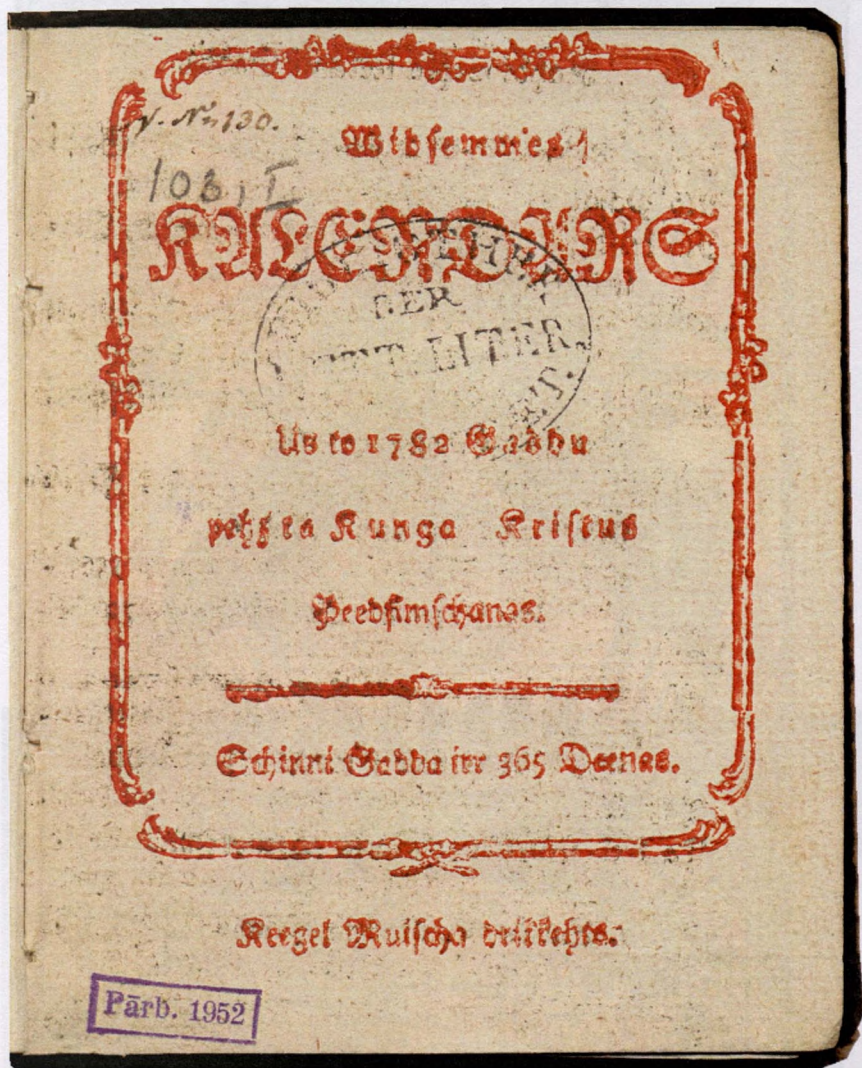 V. № 130.
103, I
Widsemmes
KALENDARS
BIBLIOTHEK
DER
LETT. LITER.
Us to 1782 Gaddu
pehz ta Kunga Kristus
Peedsimschanas.
Schinni Gadda irr 365 Deenas.
Keegel Muischa drikkehts.
Pārb. 1952